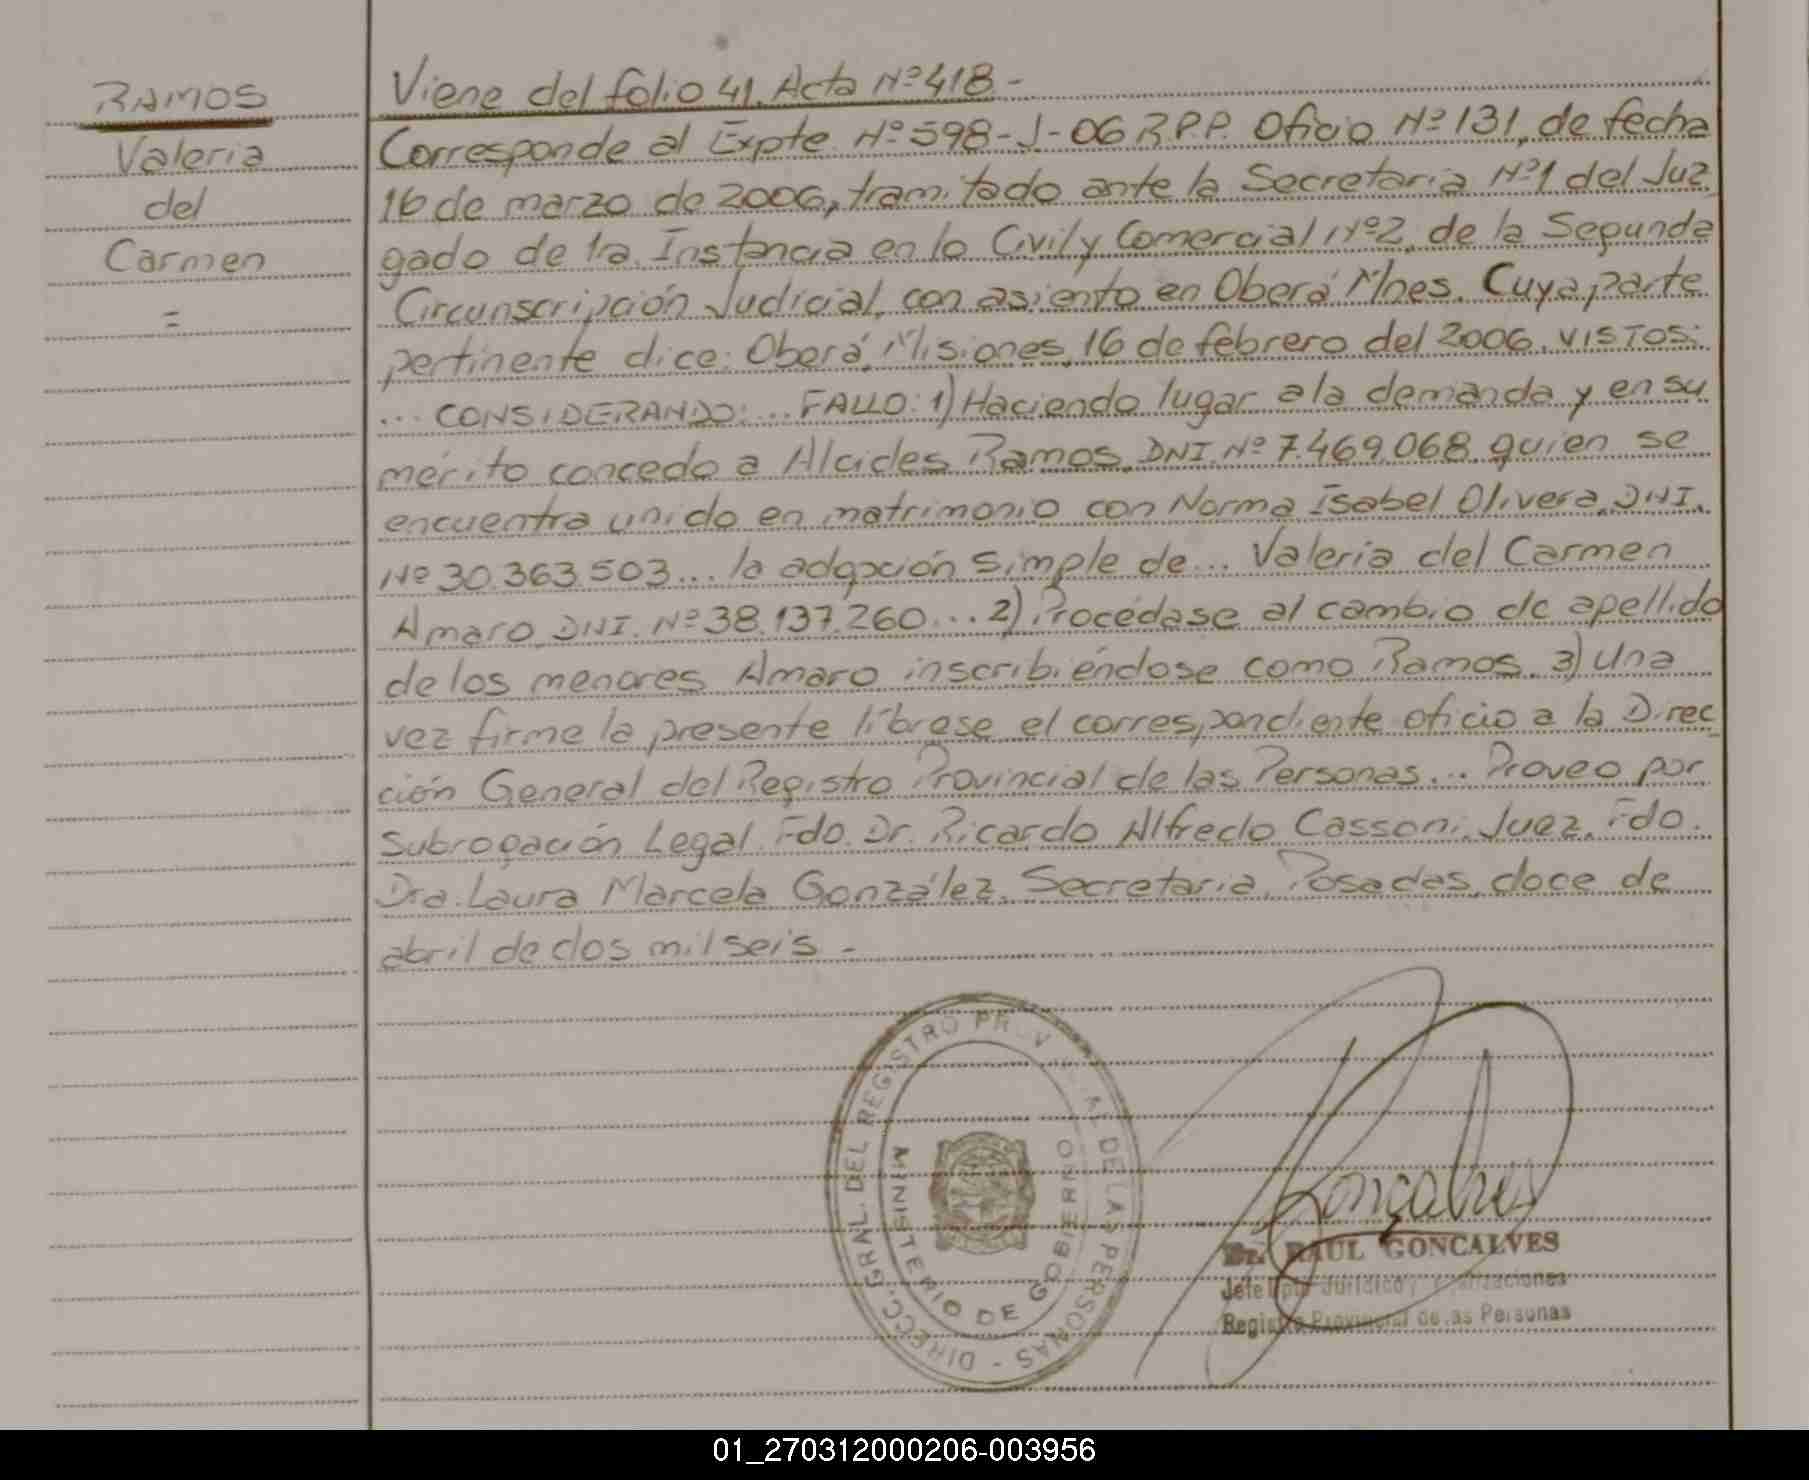 RAMOS
Valeria
del
Carmen
=
Viene del folio 41. Acta Nº 418.-
Corresponde al Expte. Nº 598-J-06 R.P.P. Oficio Nº 131, de fecha
16 de marzo de 2006, tramitado ante la Secretaría Nº1 del Juz
gado de 1ra. Instancia en lo Civil y Comercial Nº2, de la Segunda
Circunscripción Judicial, con asiento en Oberá Mnes. Cuya parte
pertinente dice: Oberá, Misiones, 16 de febrero del 2006. VISTOS:
... CONSIDERANDO: ... FALLO: 1) Haciendo lugar a la demanda y en su
mérito concedo a Alcides Ramos, DNI. Nº 7.469.068, quien se
encuentra unido en matrimonio con Norma Isabel Olivera, DNI.
Nº 30.363.503... la adopción simple de... Valeria del Carmen
Amaro, DNI. Nº 38.137.260... 2) Procédase al cambio de apellido
de los menores Amaro inscribiéndose como Ramos. 3) Una
vez firme la presente líbrese el correspondiente oficio a la Direc_
ción General del Registro Provincial de las Personas... Proveo por
Subrogación Legal. Fdo. Dr. Ricardo Alfredo Cassoni. Juez. Fdo.
Dra. Laura Marcela González. Secretaria. Posadas, doce de
abril de dos mil seis.-
DIRECC. GRAL. DEL REGISTRO PROVINCIAL DE LAS PERSONAS -
MINISTERIO DE GOBIERNO
Goncalves
Dr. RAUL GONCALVES
Jefe Dpto Jurídico y
Registro Provincial de las Personas
01_270312000206-003956